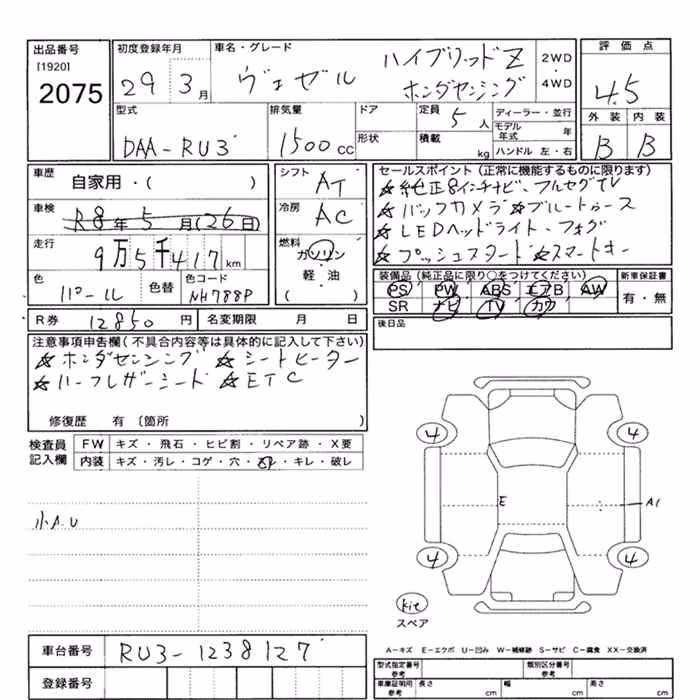 出品番号 初度登録年月 車名・グレード 評価点
[1920]
2075
29年3月 ヴェゼル ハイブリッドZ 2WD
ホンダセンシング ・4WD 4.5
型式 排気量 ドア 定員 5人 ディーラー・並行 外装 内装
モデル年式 年
DAA-RU3 1500cc 形状 積載 kg ハンドル 左・右 B B
車歴 自家用・( ) シフト AT セールスポイント(正常に機能するものに限ります)
☆純正8インチナビ、フルセグTV
車検 R8年5月(26日) 冷房 AC ☆バックカメラ☆ブルートゥース
☆LEDヘッドライト、フォグ
走行 9万5千417km 燃料 ガソリン・軽・油 ( ) ☆プッシュスタート☆スマートキー
色 パール 色替 色コード NH788P 装備品(純正品に限り○をつけてください) 新車保証書
PS PW ABS エアB AW 有・無
SR ナビ TV カワ
R券 12850円 名変期限 月 日 後日品
注意事項申告欄(不具合内容等は具体的に記入して下さい)
☆ホンダセンシング ☆シートヒーター
☆ハーフレザーシート ☆ETC
修復歴 有 〔箇所 〕
検査員記入欄 FW キズ・飛石・ヒビ割・リペア跡・X要
内装 キズ・汚レ・コゲ・穴・スレ・キレ・破レ
4 4
E A1
小A.U
4 4
kit
スペア
A－キズ E－エクボ U－凹み W－補修跡 S－サビ C－腐食 XX－交換済
車台番号 RU3-1238127
型式指定番号 参考 類別区分番号 参考
登録番号 車庫証明用 参考 長さ cm 幅 cm 高さ cm